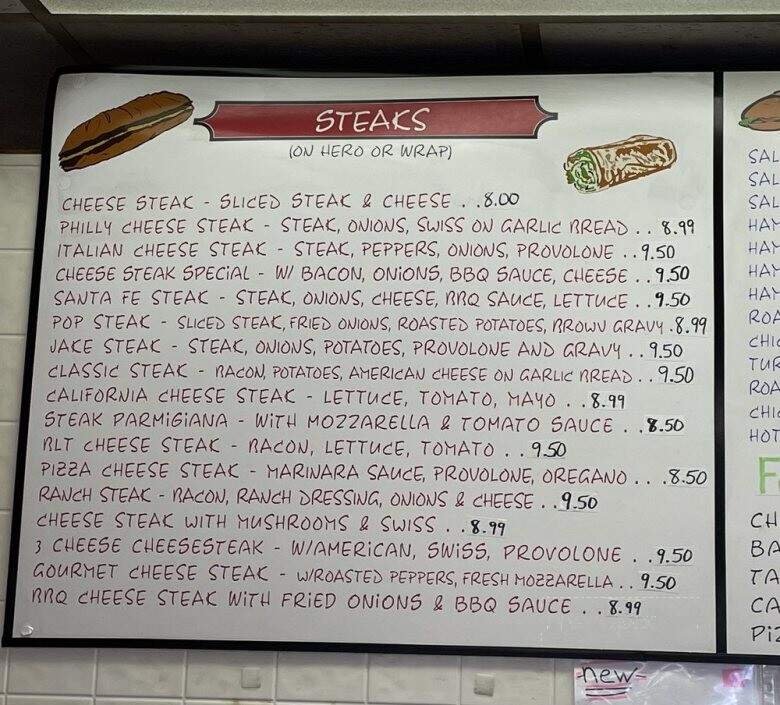 STEAKS
(ON HERO OR WRAP)
CHEESE STEAK - SLICED STEAK & CHEESE . . 8.00
PHILLY CHEESE STEAK - STEAK, ONIONS, SWISS ON GARLIC BREAD . . 8.99
ITALIAN CHEESE STEAK - STEAK, PEPPERS, ONIONS, PROVOLONE . . 9.50
CHEESE STEAK SPECIAL - W/ BACON, ONIONS, BBQ SAUCE, CHEESE . . 9.50
SANTA FE STEAK - STEAK, ONIONS, CHEESE, BBQ SAUCE, LETTUCE . . 9.50
POP STEAK - SLICED STEAK, FRIED ONIONS, ROASTED POTATOES, BROWN GRAVY . 8.99
JAKE STEAK - STEAK, ONIONS, POTATOES, PROVOLONE AND GRAVY . . 9.50
CLASSIC STEAK - BACON, POTATOES, AMERICAN CHEESE ON GARLIC BREAD . . 9.50
CALIFORNIA CHEESE STEAK - LETTUCE, TOMATO, MAYO . . 8.99
STEAK PARMIGIANA - WITH MOZZARELLA & TOMATO SAUCE . . 8.50
BLT CHEESE STEAK - BACON, LETTUCE, TOMATO . . 9.50
PIZZA CHEESE STEAK - MARINARA SAUCE, PROVOLONE, OREGANO . . . 8.50
RANCH STEAK - BACON, RANCH DRESSING, ONIONS & CHEESE . . 9.50
CHEESE STEAK WITH MUSHROOMS & SWISS . . 8.99
3 CHEESE CHEESESTEAK - W/AMERICAN, SWISS, PROVOLONE . . 9.50
GOURMET CHEESE STEAK - W/ROASTED PEPPERS, FRESH MOZZARELLA . . 9.50
BBQ CHEESE STEAK WITH FRIED ONIONS & BBQ SAUCE . . 8.99
SAL
SAL
SAL
HAM
HAM
HAM
HAM
ROA
CHIC
TUR
ROA
CHIC
HOT
F
CH
BA
TA
CA
PIZ
-new-